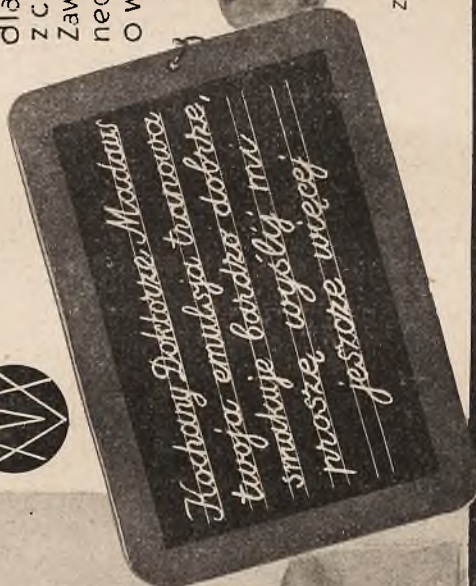 dla
z c
Zaw
nec
o w
Kochany Doktorze Madaus
twoja emulsja tranowa
smakuje bardzo dobrze,
proszę wyślij mi
jeszcze więcej
z